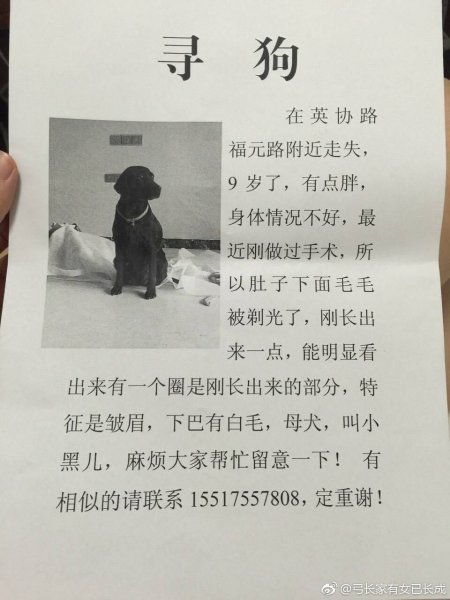 寻 狗
在英协路
福元路附近走失，
9 岁了，有点胖，
身体情况不好，最
近刚做过手术，所
以肚子下面毛毛
被剃光了，刚长出
来一点，能明显看
出来有一个圈是刚长出来的部分，特
征是皱眉，下巴有白毛，母犬，叫小
黑儿，麻烦大家帮忙留意一下！有
相似的请联系 15517557808，定重谢！
@弓长家有女已长成